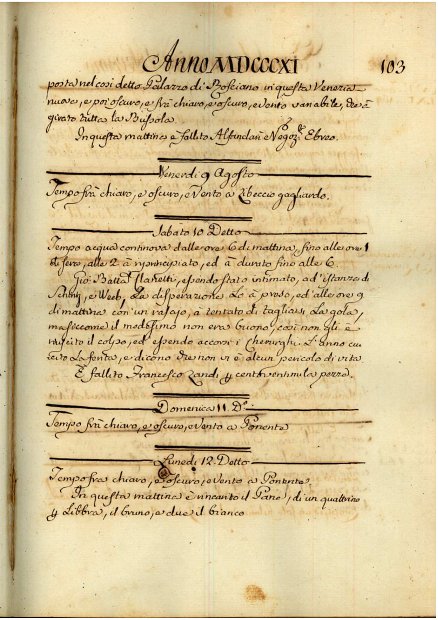 Anno MDCCCXI 103
porta nel così detto Palazzo di Rosciano in questa Venezia
nuova, e poi oscuro, e frà chiaro, e oscuro, e vento variabile, che à
girato tutta la Bussola.
In questa mattina è fallito Alfandari Negoz.e Ebreo.
Venerdi 9 Agosto
Tempo frà chiaro, e oscuro, e vento a Libeccio gagliardo.
Sabato 10 Detto
Tempo acqua continova dalle ore 6 di mattina fino alle ore 1
di sera, alle 2 à riprincipiato, ed à durato fino alle 6.
Gio: Batta essendo stato intimato, ad'istanza di
e Web, la disperazione lo à preso, ed'alle ore 9
di mattina con un rasajo, à tentato di tagliarsi la gola,
ma siccome il medesimo non era buono, così non gli è
riuscito il colpo, ed essendo accorsi i Chirurghi l'anno cu
cito la ferita, e dicono che non vi è alcun pericolo di vita
È fallito Francesco Zandi p centoventimila pezze.
Domenica 11 D.o
Tempo frà chiaro, e oscuro, e vento a Ponente
Lunedi 12 Detto
Tempo fra chiaro, e oscuro, e vento a Ponente
In questa mattina è rincarito il Pane, di un quattrino
p Libbra, il bruno, e due il bianco